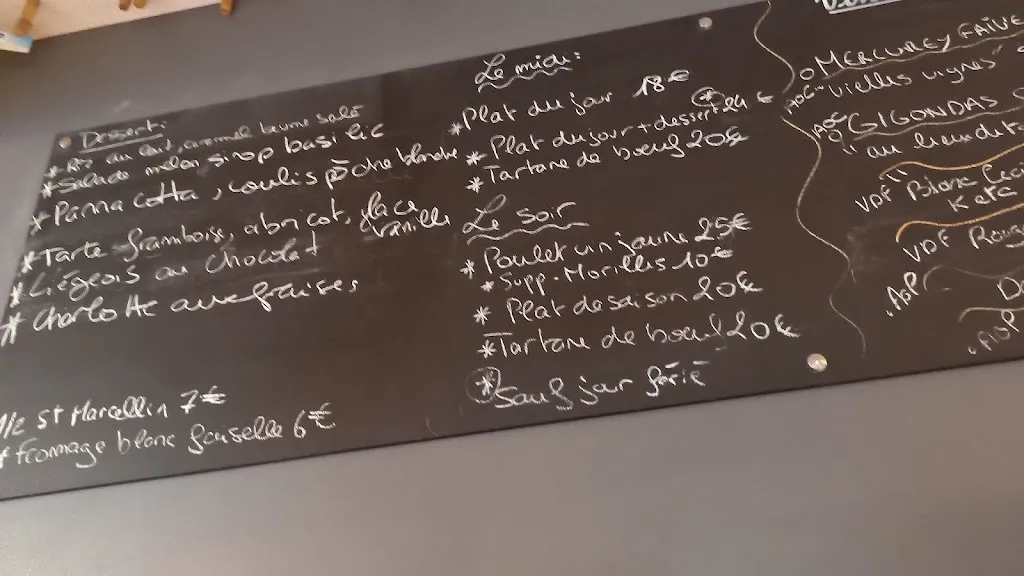 Dessert:
* Riz au lait, caramel beurre salé
* Salade melon sirop basilic
* Panna cotta, coulis pêche blanche
* Tarte framboise, abricot, glace
vanille
* Liégeois au chocolat
* Charlotte aux fraises
1/2 St Marcellin 7€
* Fromage blanc faisselle 6€
Le midi:
* Plat du jour 18€
* Plat du jour + dessert 24€
* Tartare de bœuf 20€
Le Soir
* Poulet vin jaune 25€
* Supp. Morilles 10€
* Plat de saison 20€
* Tartare de bœuf 20€
* Sauf jour férié
MERCUREY FAIVE
AOC "Vielles vignes"
AOC GIGONDAS
" au lieu dit
VDF " Blanc
VDF Roug
AOP
AOP